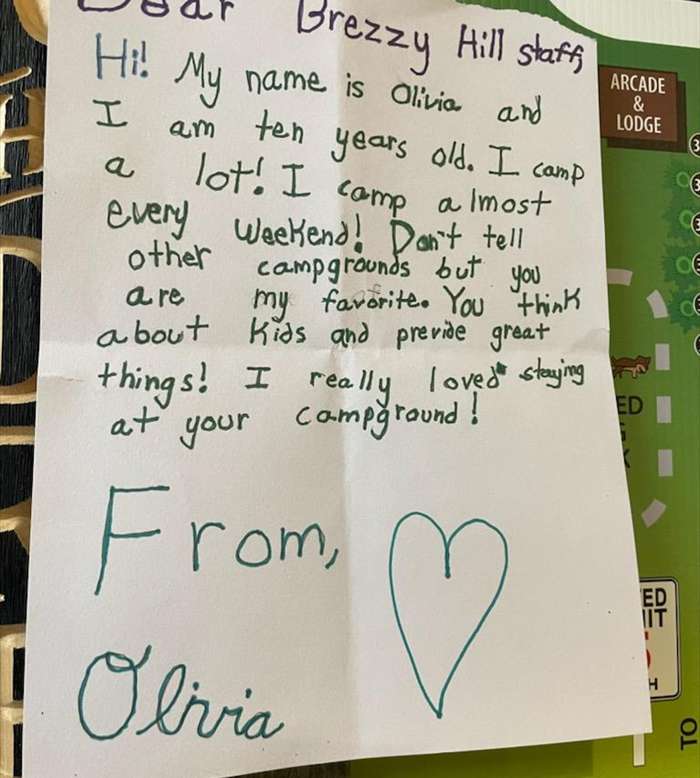 Dear Brezzy Hill staff,
Hi! My name is Olivia and
I am ten years old. I camp
a lot! I camp almost
every weekend! Don't tell
other campgrounds but you
are my favorite. You think
about kids and previde great
things! I really loved staying
at your campground!
From,
Olivia
ARCADE
&
LODGE
ED
ED
IT
5
H
TO